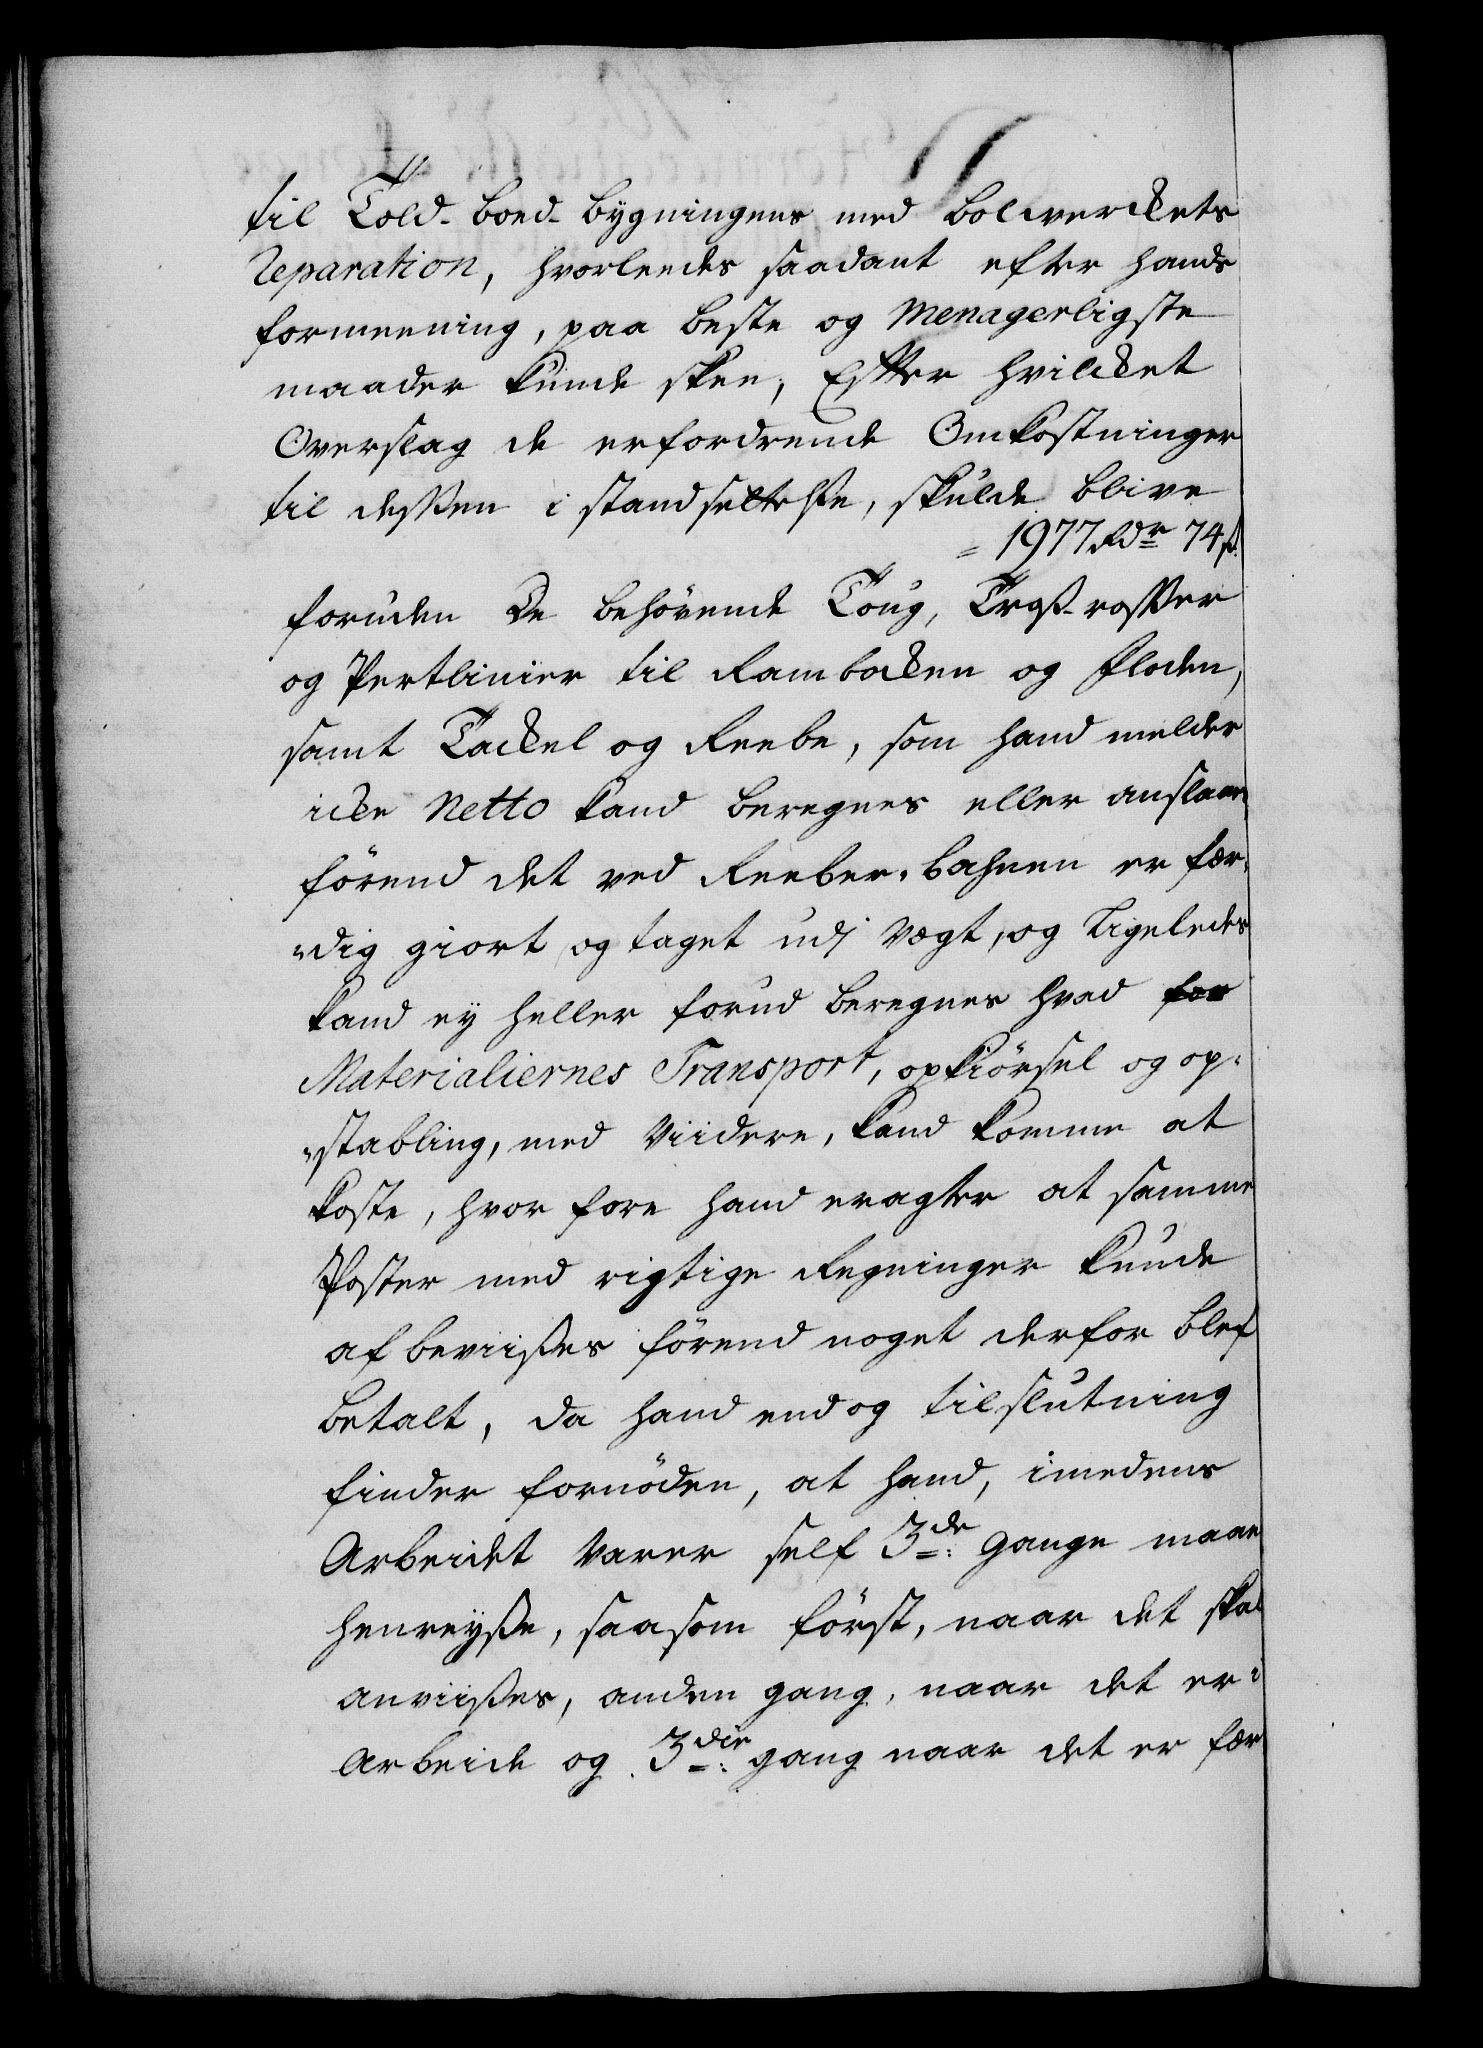 til Told-boed-bygningens med bolwerckets
Reparation, hvorleedes saadant efter hands
formeening, paa beste og Menagerligste
maader kunde skee; Efter hvilcket
Overslag de erfordrende Omkostninger
til dessen i standsettelse, skulde blive
= 1977 Rdr 74 ß.
foruden de behövende Toug, Troß-
og Pertlinier til Rambocken og floden,
samt Tackel og Reebe, som hand melder
icke Netto kand beregnes eller anslaaes
förend det ved Reeber-bahnen er fær-
dig giort og taget udj vægt, og Ligeledes
kand ey heller forud beregnes hvad
Materialiernes Transport, opkiörsel og op-
stabling, med viidere, kand komme at
koste, hvor fore hand eragter at samme
Poster med rigtige Regninger kunde
afbeviises förend noget derfor blef
betalt, da hand endog til slutning
finder fornöden, at hand, imedens
Arbeidet varer self 3de gange maae
henreyse, saasom först, naar det skal
anviises, anden gang, naar det er i
Arbeide og 3die gang naar det er fær